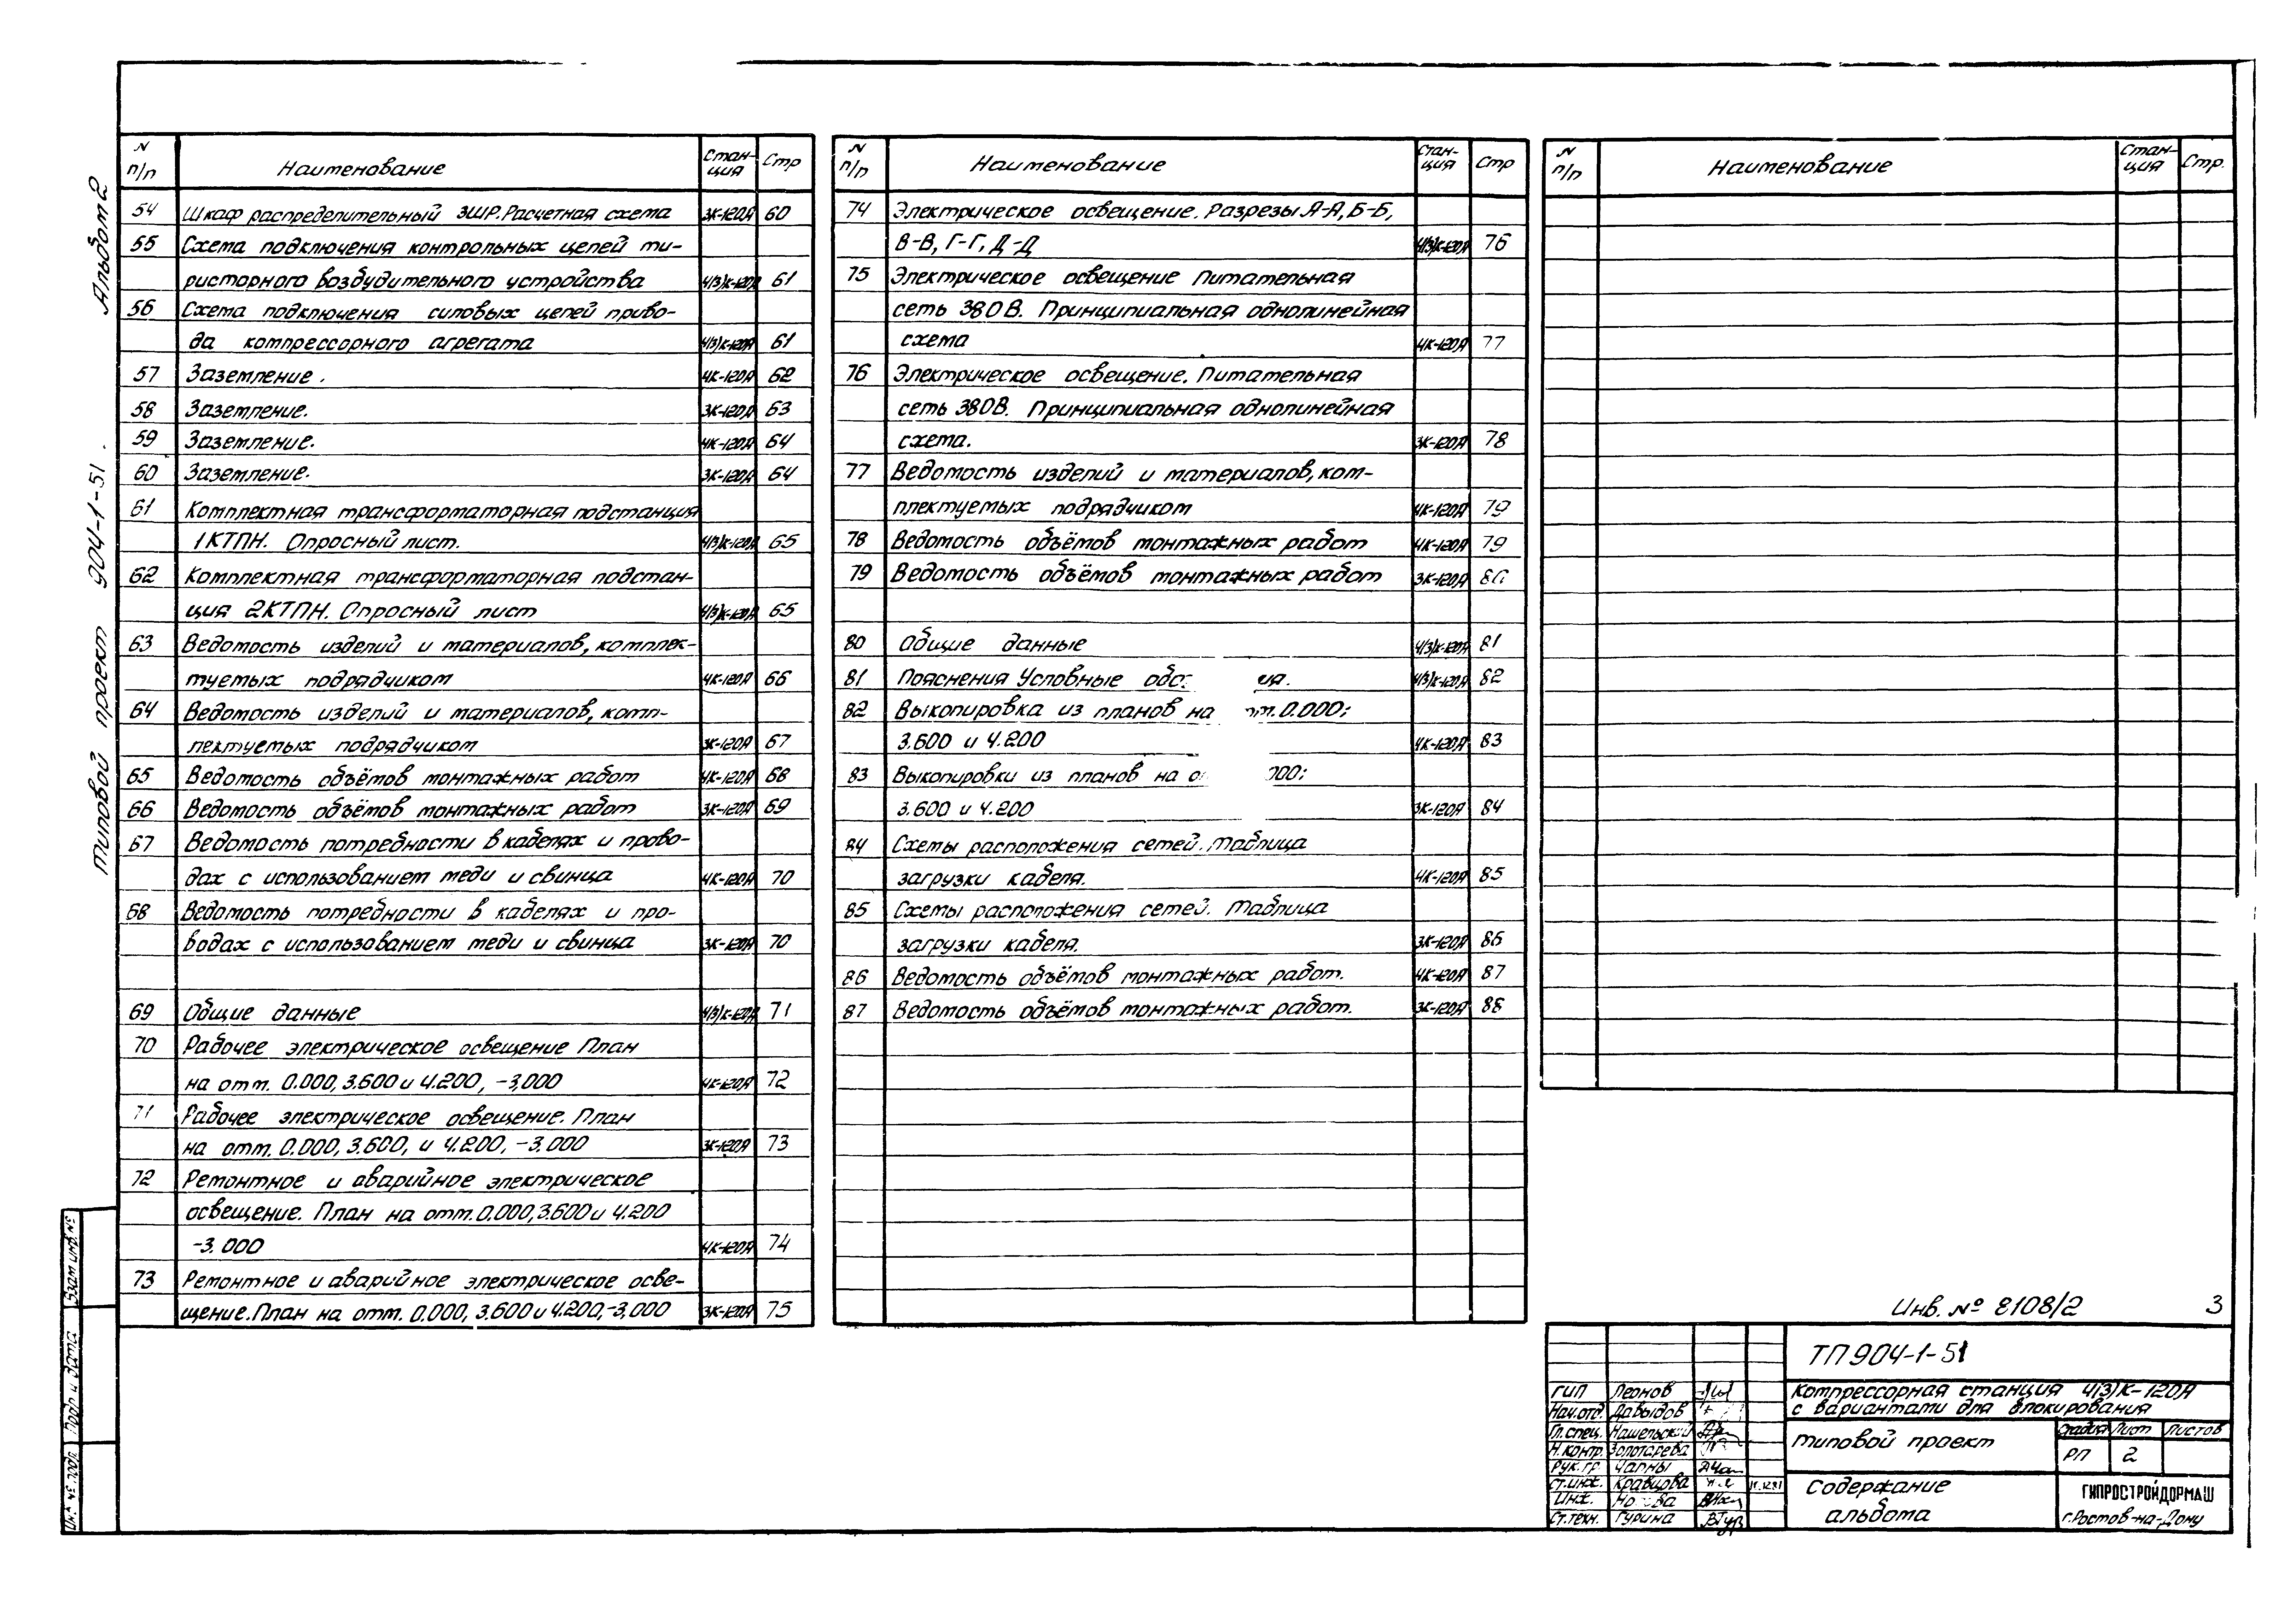 Альбом 2
Типовой проект 904-1-51
N п/п Наименование Стан-ция Стр
54 Шкаф распределительный 3ШР. Расчетная схема 3К-120А 60
55 Схема подключения контрольных цепей ти-
ристорного возбудительного устройства 4(3)К-120А 61
56 Схема подключения силовых цепей приво-
да компрессорного агрегата 4(3)К-120А 61
57 Заземление. 4К-120А 62
58 Заземление. 3К-120А 63
59 Заземление. 4К-120А 64
60 Заземление. 3К-120А 64
61 Комплектная трансформаторная подстанция
1КТПН. Опросный лист. 4(3)К-120А 65
62 Комплектная трансформаторная подстан-
ция 2КТПН. Опросный лист 4(3)К-120А 65
63 Ведомость изделий и материалов, комплек-
туемых подрядчиком 4К-120А 66
64 Ведомость изделий и материалов, комп-
лектуемых подрядчиком 3К-120А 67
65 Ведомость объёмов монтажных работ 4К-120А 68
66 Ведомость объёмов монтажных работ 3К-120А 69
67 Ведомость потребности в кабелях и прово-
дах с использованием меди и свинца 4К-120А 70
68 Ведомость потребности в кабелях и про-
водах с использованием меди и свинца 3К-120А 70
69 Общие данные 4(3)К-120А 71
70 Рабочее электрическое освещение План
на отм. 0.000, 3.600 и 4.200, -3,000 4К-120А 72
71 Рабочее электрическое освещение. План
на отм. 0.000, 3.600, и 4.200, -3.000 3К-120А 73
72 Ремонтное и аварийное электрическое
освещение. План на отм. 0.000, 3.600 и 4.200
-3.000 4К-120А 74
73 Ремонтное и аварийное электрическое осве-
щение. План на отм. 0.000, 3.600 и 4.200, -3,000 3К-120А 75
N п/п Наименование Стан-ция Стр
74 Электрическое освещение. Разрезы А-А, Б-Б,
В-В, Г-Г, Д-Д 4(3)К-120А 76
75 Электрическое освещение Питательная
сеть 380В. Принципиальная однолинейная
схема 4К-120А 77
76 Электрическое освещение. Питательная
сеть 380В. Принципиальная однолинейная
схема. 3К-120А 78
77 Ведомость изделий и материалов, ком-
плектуемых подрядчиком 4К-120А 79
78 Ведомость объёмов монтажных работ 4К-120А 79
79 Ведомость объёмов монтажных работ 3К-120А 80
80 Общие данные 4(3)К-120А 81
81 Пояснения Условные 4(3)К-120А 82
82 Выкопировка из планов на 0.000;
3.600 и 4.200 4К-120А 83
83 Выкопировки из планов на
3.600 и 4.200 3К-120А 84
84 Схемы расположения сетей. Таблица
загрузки кабеля. 4К-120А 85
85 Схемы расположения сетей. Таблица
загрузки кабеля. 3К-120А 86
86 Ведомость объёмов монтажных работ. 4К-120А 87
87 Ведомость объёмов монтажных работ. 3К-120А 88
N п/п Наименование Стан-ция Стр.
Инв. № 8108/2 3
ТП 904-1-51
Компрессорная станция 4(3)К-120А
с вариантами для блокирования
Типовой проект
Стадия Лист Листов
РП 2
Содержание
альбома
ГИПРОСТРОЙДОРМАШ
г. Ростов-на-Дону
ГИП Леонов
Нач.отд. Давыдов
Гл.спец. Нашельский
Н.контр. Золотарева
Рук.гр. Чапны
Ст.инж. Кравцова
Инж.
Ст.техн. Гурина
Взам инв. №
Подп и дата
Инв. № подл.